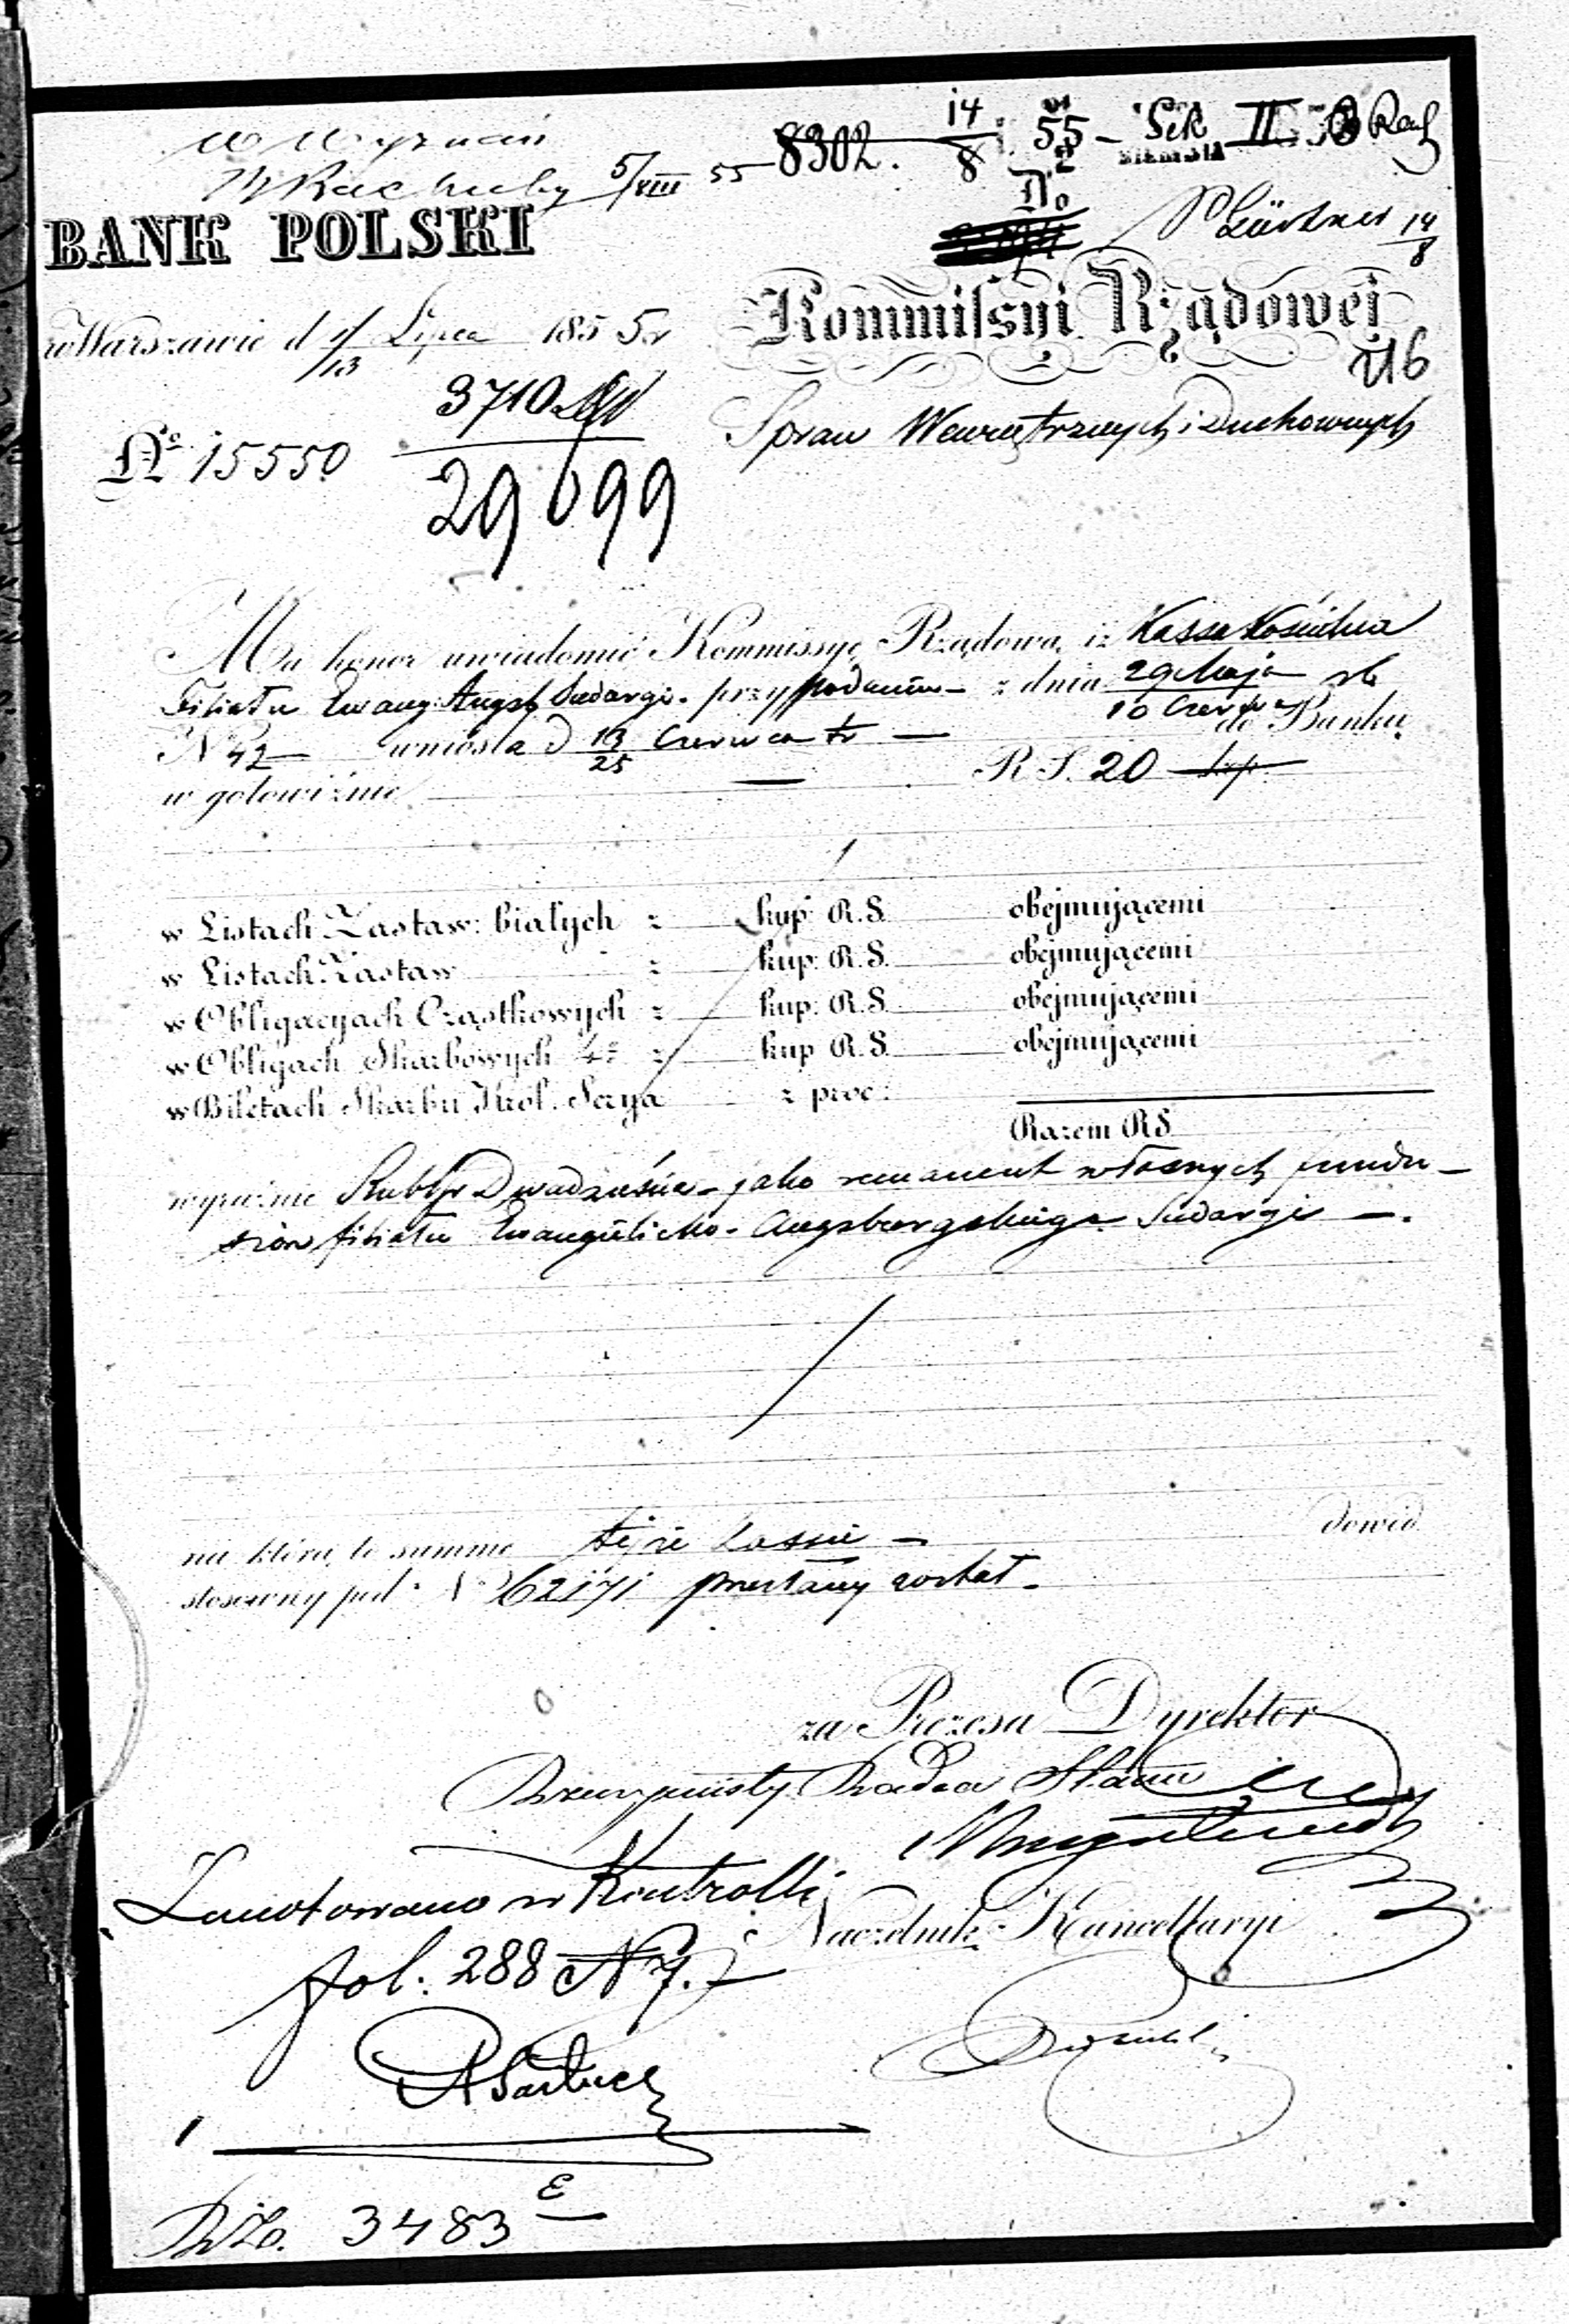 W Wyznań
W Rachuby 5/VIII 55
8302. 14/8 55 - Sek II
Do
14/8
BANK POLSKI
Kommissyi Rządowej
w Warszawie d 1/13 Lipca 1855 r
216
3710
Spraw Wewnętrznych i Duchownych
No 15550
29699
Ma honor uwiadomić Kommissyę Rządową, iż Kassa Kościelna
Filiału Ewang: Augsb Sudargi - przy podaniu - z dnia 29 Maja / 10 Czerwca rb
N 42 - wniosła d 13/25 Czerwca tr - do Banku,
w gotowiźnie - R S. 20 - kop.
w Listach Zastaw: białych z kup: R.S. obejmującemi
w Listach Zastaw z kup: R.S. obejmującemi
w Obligacyach Cząstkowych z kup: R.S. obejmującemi
w Obligach Skarbowych 4% z kup R.S. obejmującemi
w Biletach Skarbu Król. Serya z proc:
Razem RS
wyraźnie Rubsr Dwadzieścia - jako remanent własnych fundu-
szów filiału Ewangelicko-Augsburgskiego Sudargi -.
na którą to summę tejże kassie - dowód
stosowny pod No 62171 przesłany został -
za Prezesa Dyrektor
Rzeczywisty Radca Stanu
Zanotowano w Kontrolli
Naczelnik Kancellaryi
fol: 288 N 7.
3483 E